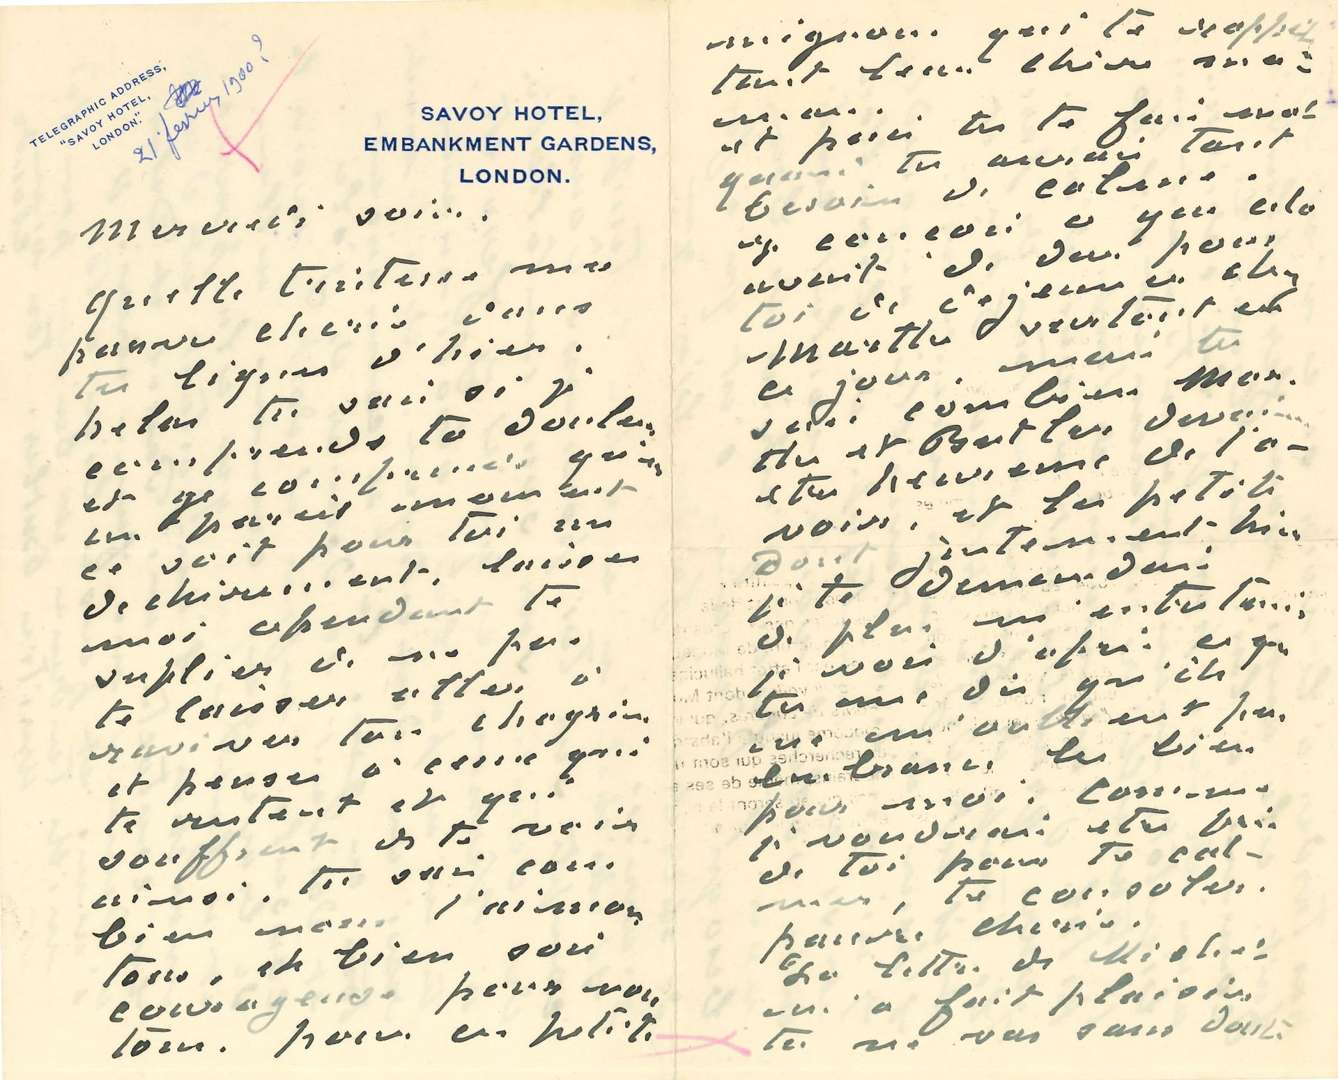 TELEGRAPHIC ADDRESS,
"SAVOY HOTEL,
LONDON."
21 fevrier 1900?
SAVOY HOTEL,
EMBANKMENT GARDENS,
LONDON.
Mercredi soir.
Quelle tristesse ma
pauvre cherie dans
tes lignes d'hier.
helas tu sais si je
comprends ta douleur
et je comprends qu'en
un pareil moment
ce soit pour toi un
dechirement. laisse
moi cependant te
supplier de ne pas
te laisser aller à
raviver ton chagrin
et penser à ceux qui
te restent et qui
souffrent de te voir
ainsi. tu sais com
bien nous t'aimons
tous, eh bien sois
courageuse pour nous
tous. pour ces petits
mignons qui te rappel
lent leur chère ma
man.
et puis tu te fais mal
quand tu aurais tant
besoin de calme.
je conçois ce que cela
avait de dur pour
toi de dejeuner chez
Marthe surtout en
ce jour. mais tu
sais combien Mar
the et Butler devaient
etre heureux de t'a-
voir, et les petits
dont justement hier
je te demandais
de plus m'entretenir
je vois d'après ce que
tu me dis qu'ils
ne m'oublient pas
embrasse les bien
pour moi. Comme
je voudrais etre près
de toi pour te cal-
mer, te consoler.
pauvre cherie.
La lettre de Michel
m'a fait plaisir
tu ne vas sans doute